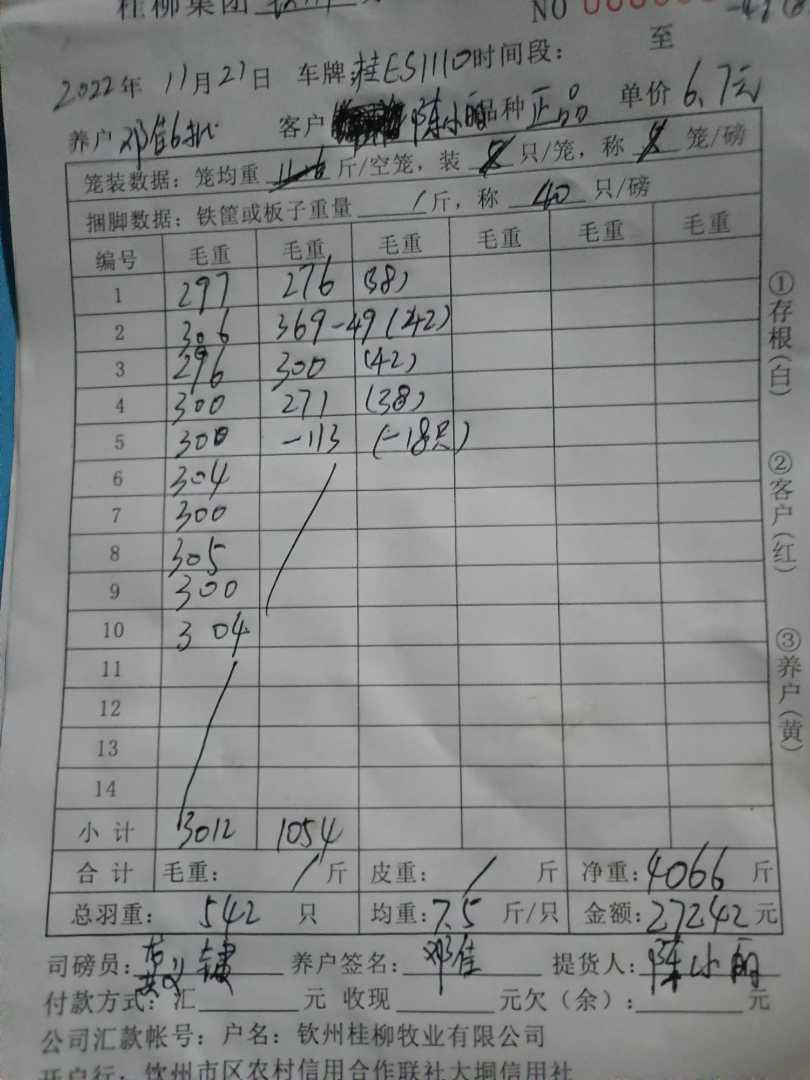 桂柳集团
NO 000000 -49
2022年 11月21日 车牌:桂ES1110 时间段: 至
养户 邓佳6批 客户 陈小丽 品种 正品 单价 6.7元
笼装数据:笼均重 11.6 斤/空笼,装 8 只/笼,称 8 笼/磅
捆脚数据:铁筐或板子重量 / 斤,称 40 只/磅
编号 毛重 毛重 毛重 毛重 毛重 毛重
1 297 276 (38)
2 306 369-49 (42)
3 296 300 (42)
4 300 271 (38)
5 300 -113 (-18只)
6 304
7 300
8 305
9 300
10 304
11
12
13
14
小计 3012 1054
合计 毛重: / 斤 皮重: / 斤 净重:4066 斤
总羽重: 542 只 均重:7.5 斤/只 金额:27242元
司磅员: 养户签名:邓佳 提货人:陈小丽
付款方式:汇 元 收现 元欠(余): 元
公司汇款帐号:户名:钦州桂柳牧业有限公司
开户行:钦州市区农村信用合作联社大垌信用社
①存根(白)
②客户(红)
③养户(黄)